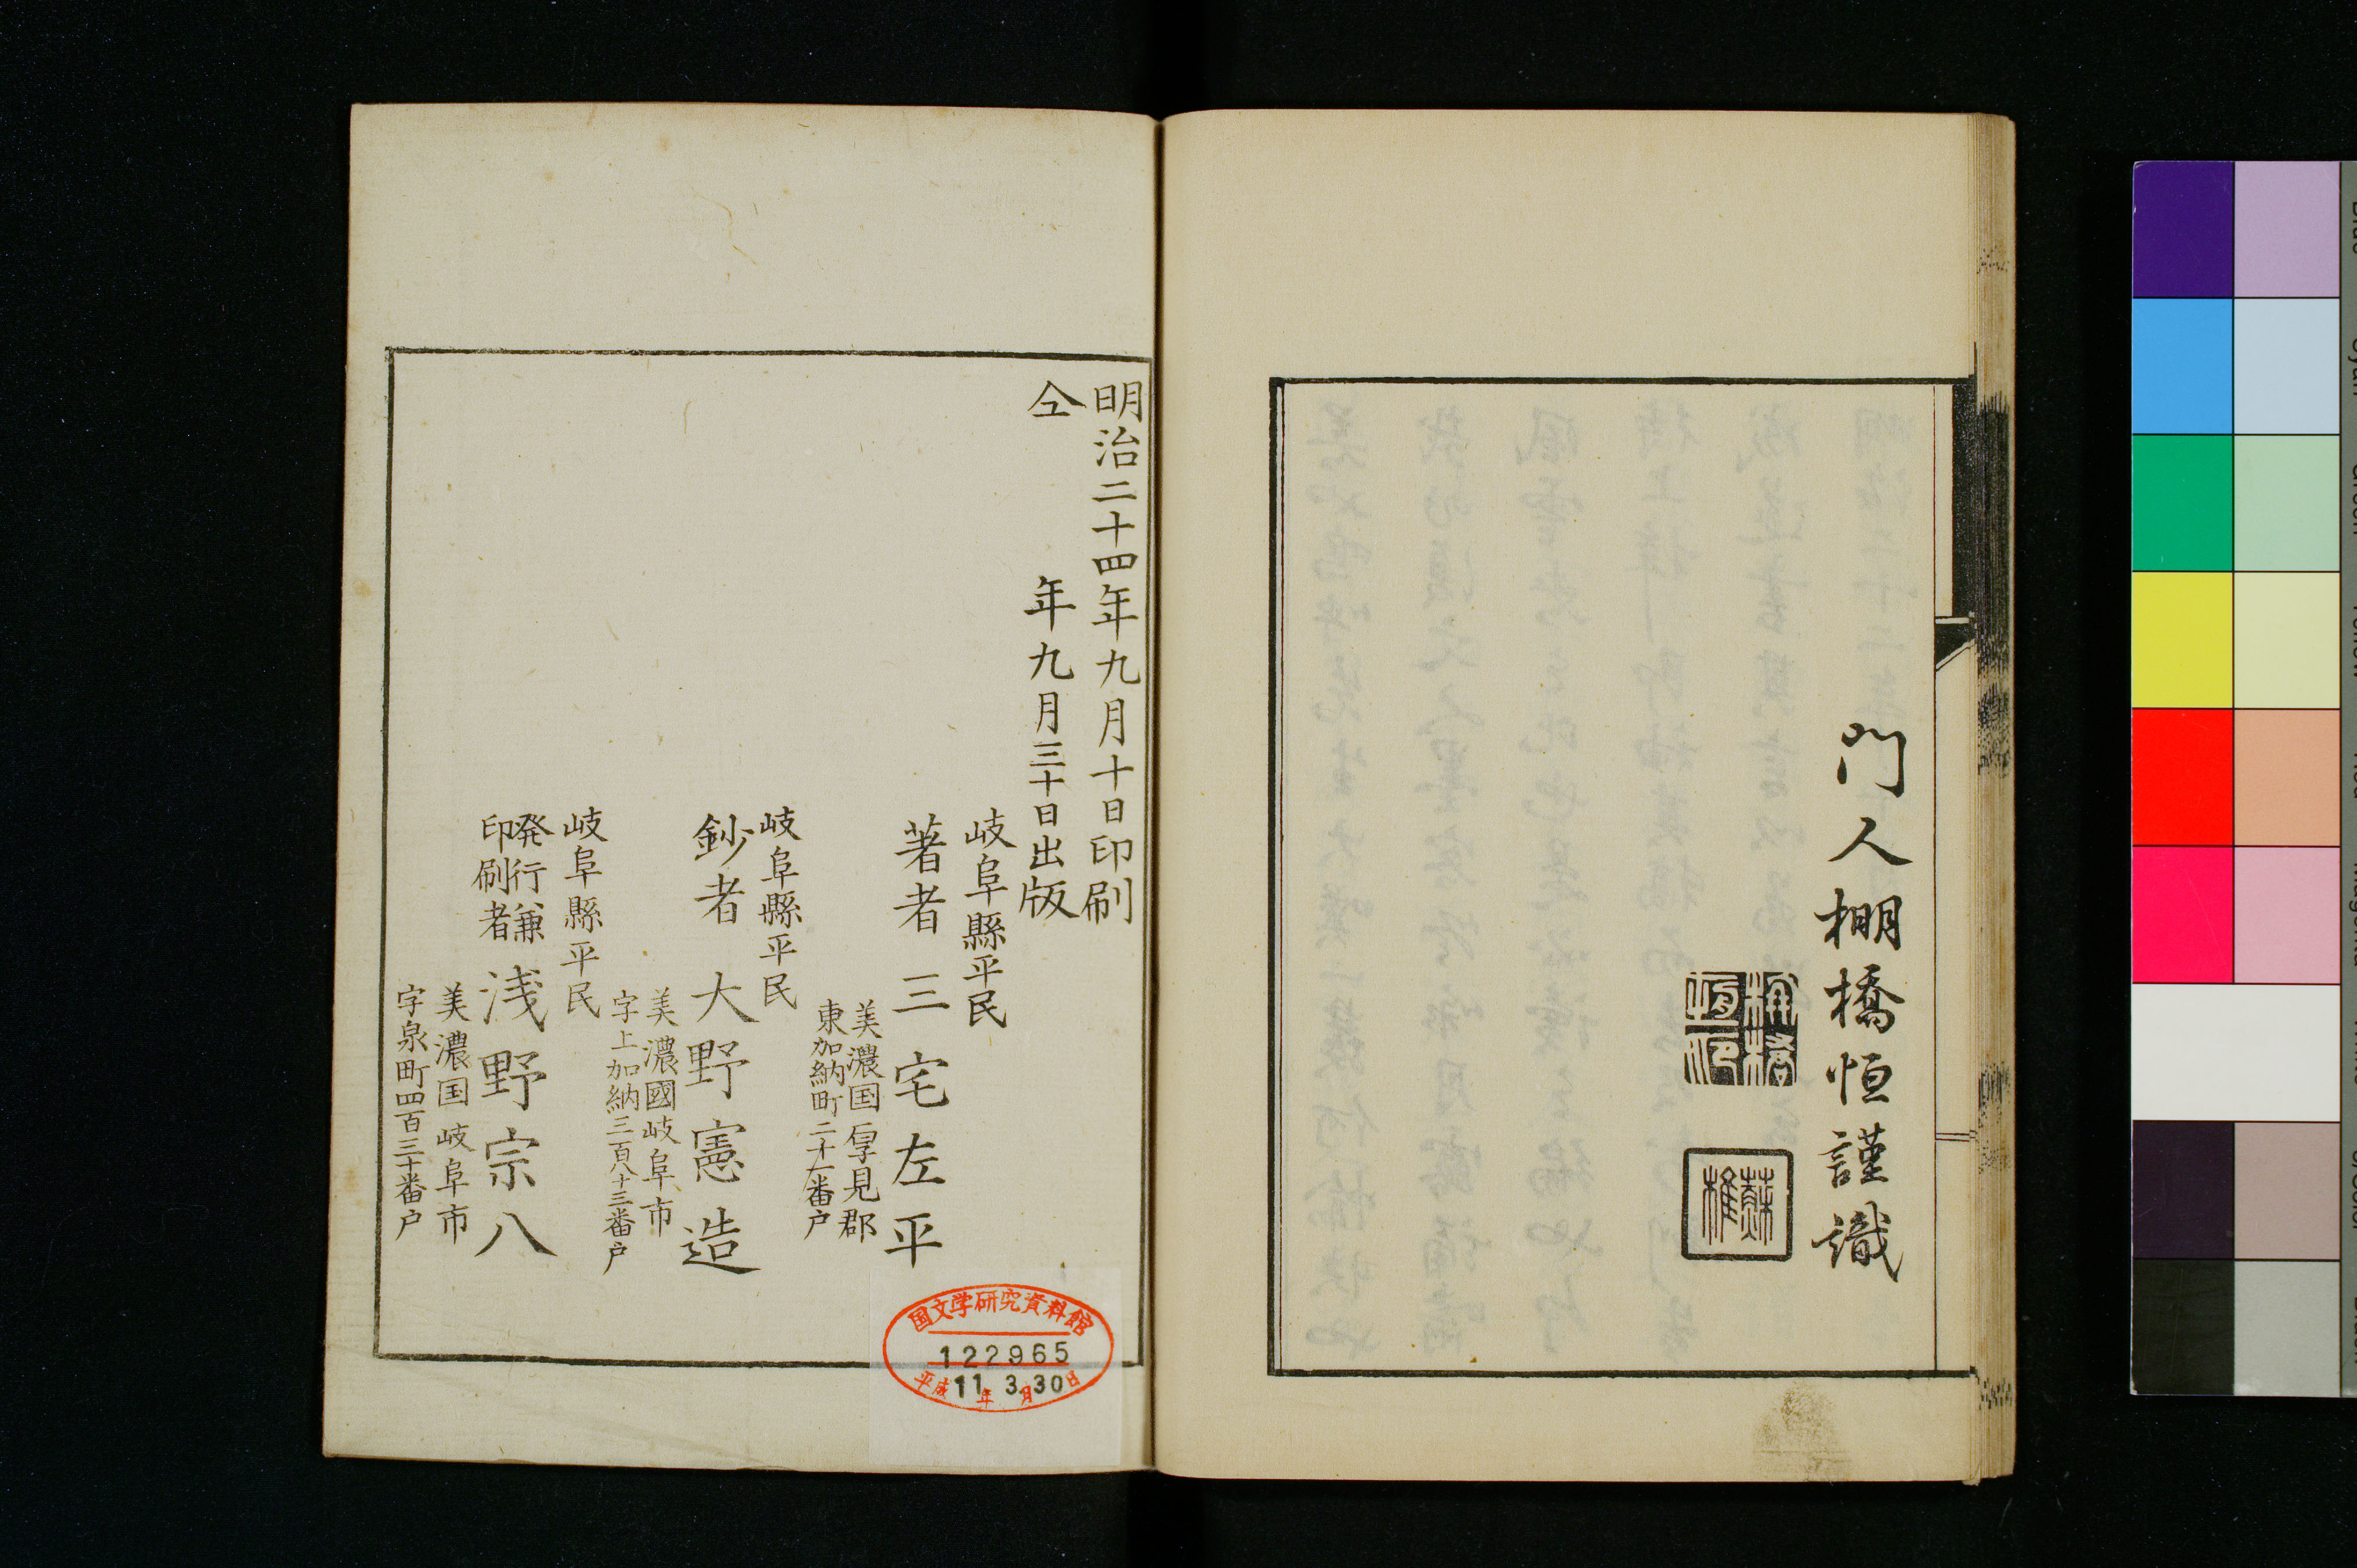 門人棚橋恒謹識
明治二十四年九月十日印刷
仝年九月三十日出版
岐阜縣平民
著者 三宅左平
美濃国厚見郡
東加納町二十一番戸
岐阜縣平民
鈔者 大野憲造
美濃國岐阜市
字上加納三百八十三番戸
岐阜縣平民
発行兼
印刷者
浅野宗八
美濃国岐阜市
字泉町四百三十番戸
国文学研究資料館
122965
平成11年3月30日